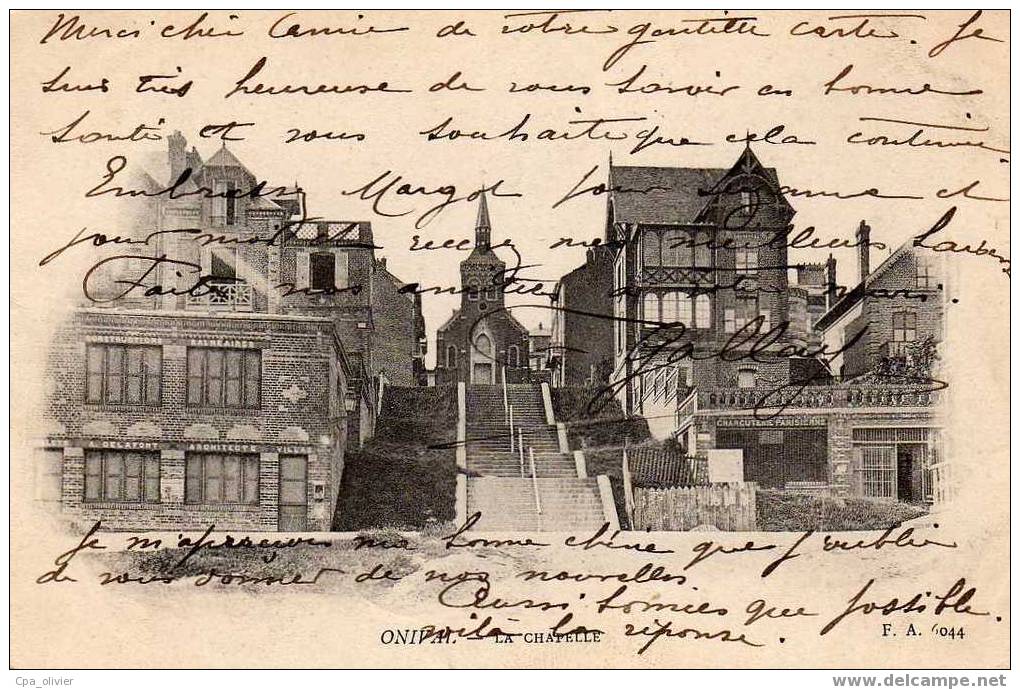 Merci chère Camie de votre gentille carte. Je
suis très heureuse de vous savoir en bonne
santé et vous souhaite que cela continue.
Embrassez Margot pour Jeanne et
pour moi recevez mes meilleurs baisers
Faites nos amitiés à votre mari.
Gallay
CONSTRUCTIONS BALNEAIRES
A. DELAFORT ARCHITECTE VILLE
CHARCUTERIE PARISIENNE
Je m'aperçois ma bonne chère que j'oublie
de vous donner de nos nouvelles.
Aussi bonnes que possible.
voilà la réponse.
ONIVAL — LA CHAPELLE
F. A. 6044
Cpa_olivier
www.delcampe.net